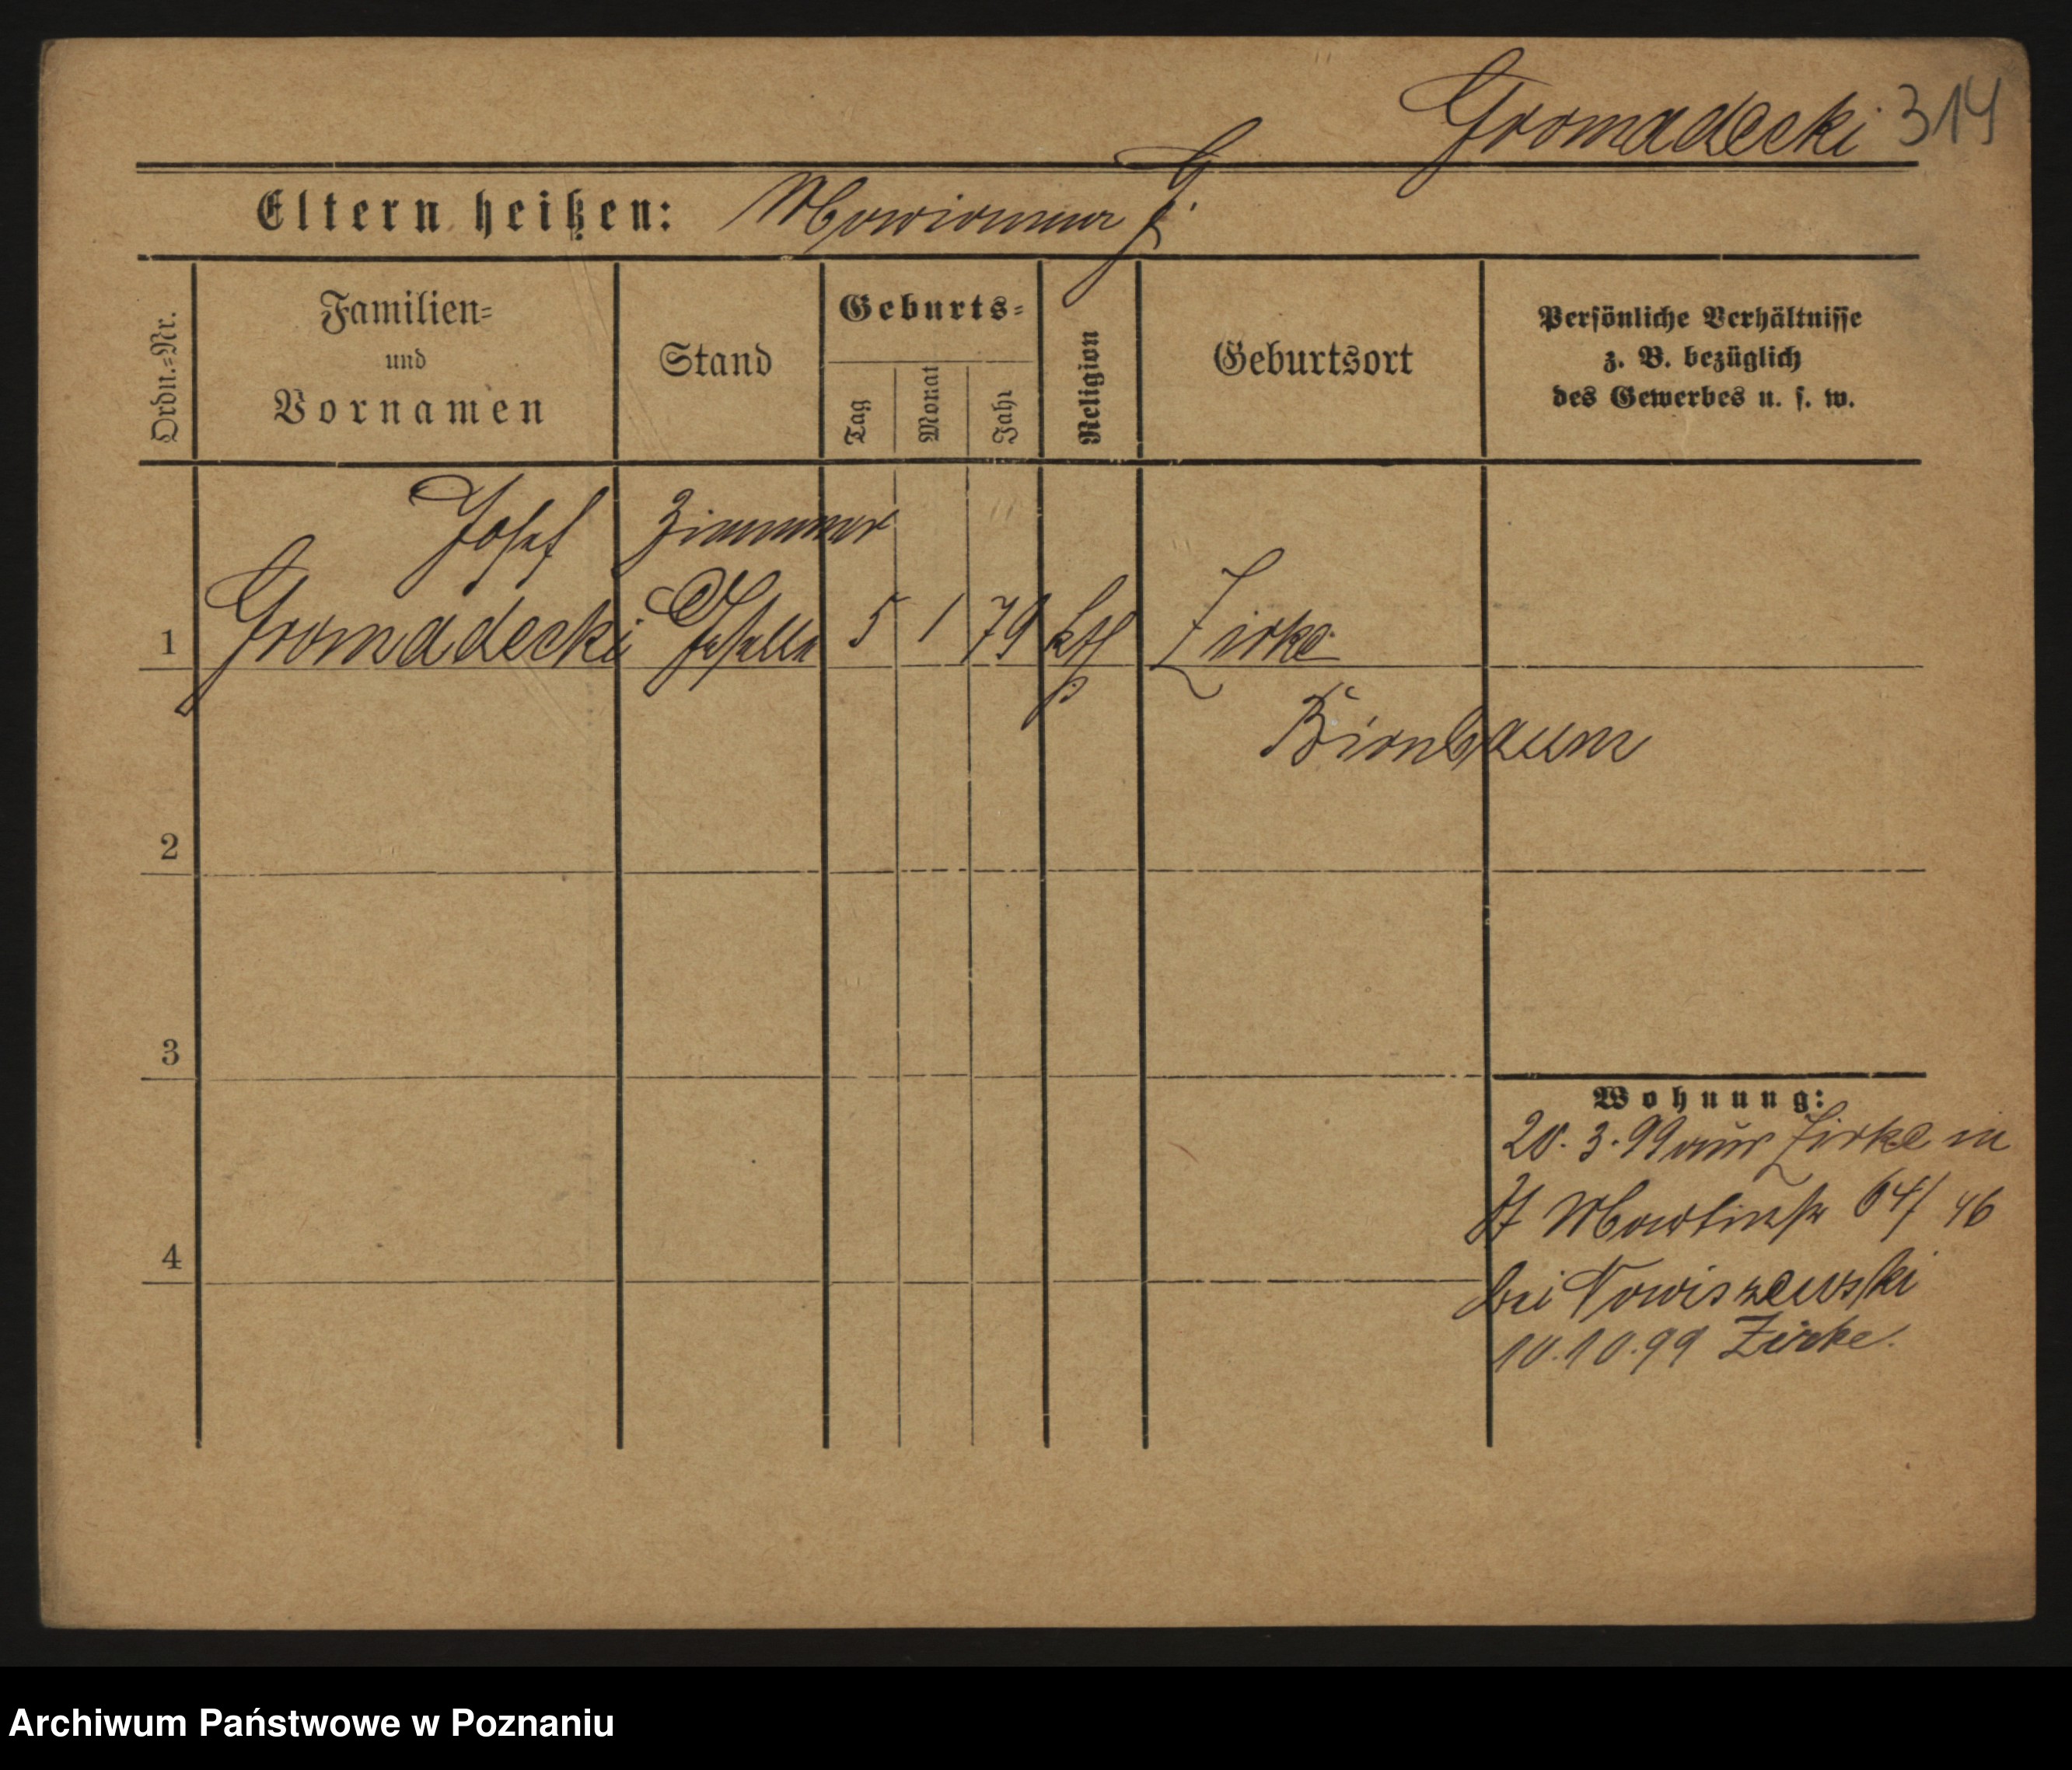 Gromadecki 314
Eltern heißen: Marianna G.
Ordn.=Nr.
Familien=
und
Vornamen
Stand
Geburts=
Tag
Monat
Jahr
Religion
Geburtsort
Persönliche Verhältnisse
z. B. bezüglich
des Gewerbes u. s. w.
Josef Zimmer
1 Gromadecki Geselle 5 1 79 kth Zirke
Birnbaum
2
3
Wohnung:
20. 3. 99 aus Zirke in
St Martinstr 64/ 46
4
bei Nowiszewski
10.10.99 Zirke.
Archiwum Państwowe w Poznaniu